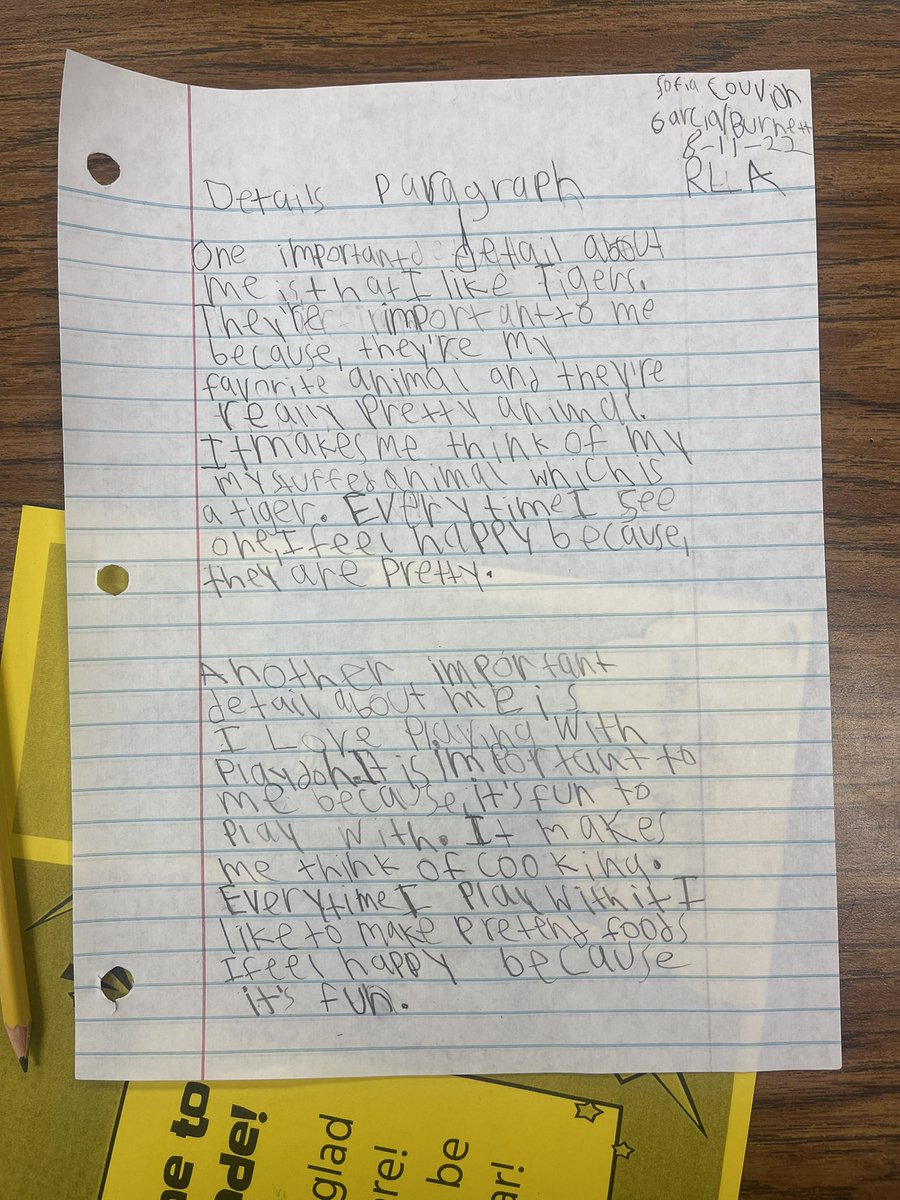 Sofia
Garcia/Burnett
8-11-22
RLA
Details Paragraph
One important detail about
me is that I like Tigers.
They're important to me
because, they're my
favorite animal and they're
really pretty animal.
It makes me think of my
my stuffed animal which is
a tiger. Every time I see
one, I feel happy because,
they are pretty.
Another important
detail about me is
I Love playing with
playdoh. It is important to
me because, it's fun to
play with. It makes
me think of cooking.
Everytime I play with it I
like to make pretend foods
I feel happy because
it's fun.
me to
nde!
glad
re!
be
ar!